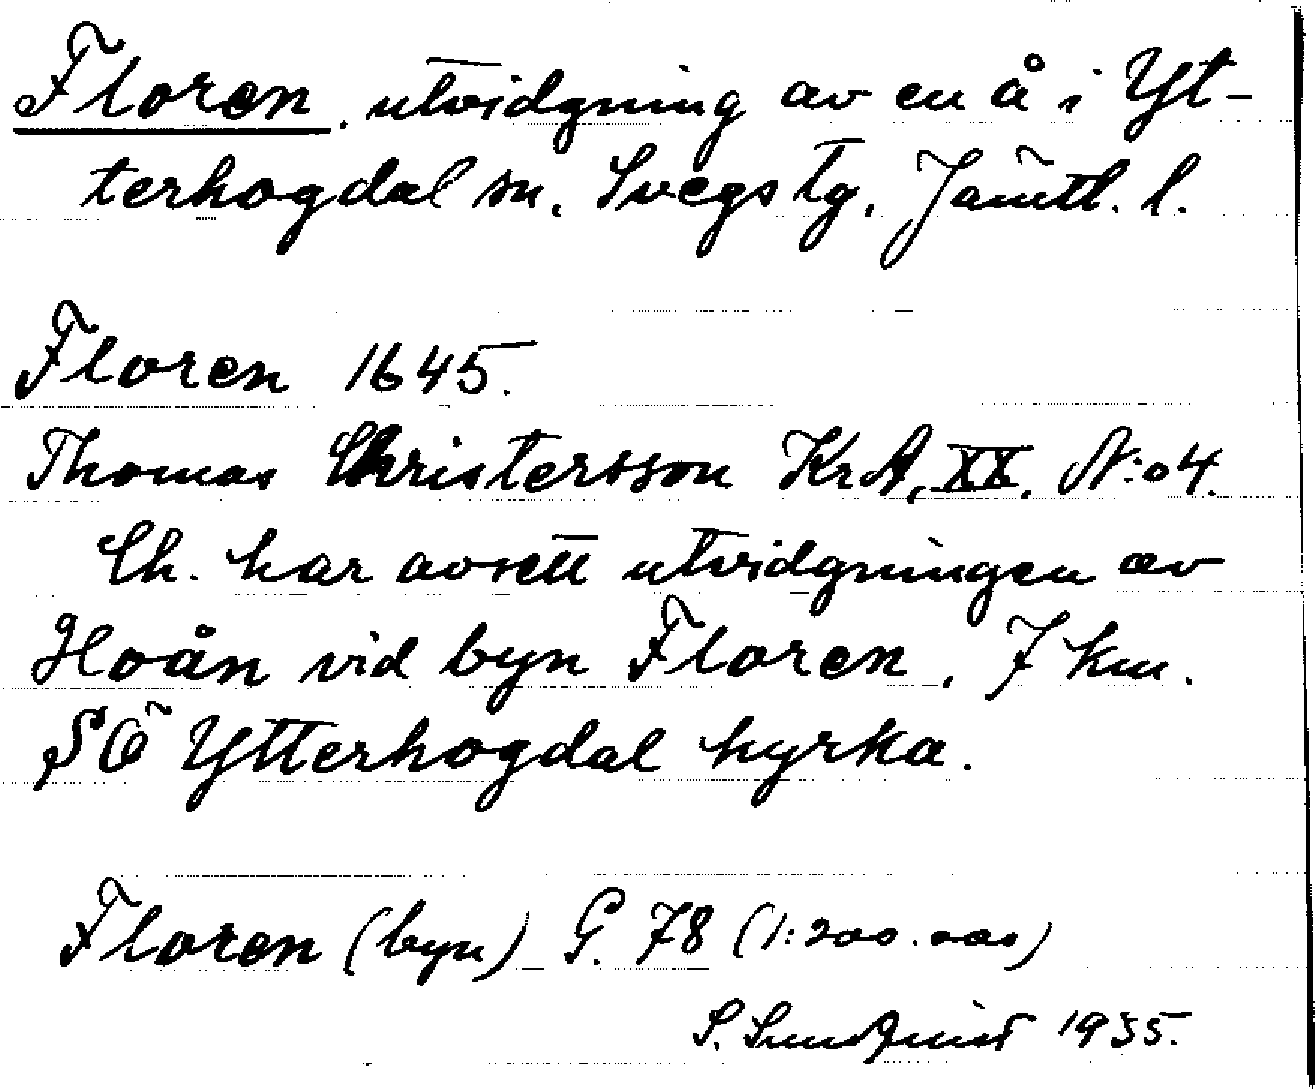 Floren. utvidgning av en å i Yt-
terhogdal sn. Svegs tg. Jämtl. l.
Floren 1645.
Thomas Christersson KrA, XX, N:o 4.
Ch. har avsett utvidgningen av
Hoån vid byn Floren, 7 km.
SÖ Ytterhogdal kyrka.
Floren (byn) G. 78 (1:200.000)
S. Sundquist 1935.